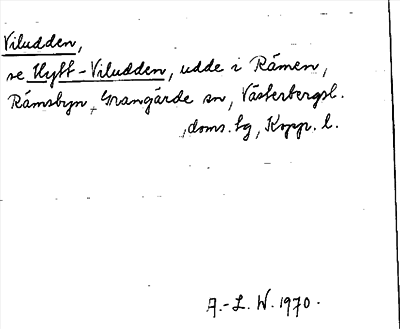 Viludden,
se Hytt-Viludden, udde i Råmen,
Råmsbyn, Grangärde sn, Västerbergsl.
doms. tg, Kopp. l.
A.-L. W. 1970.